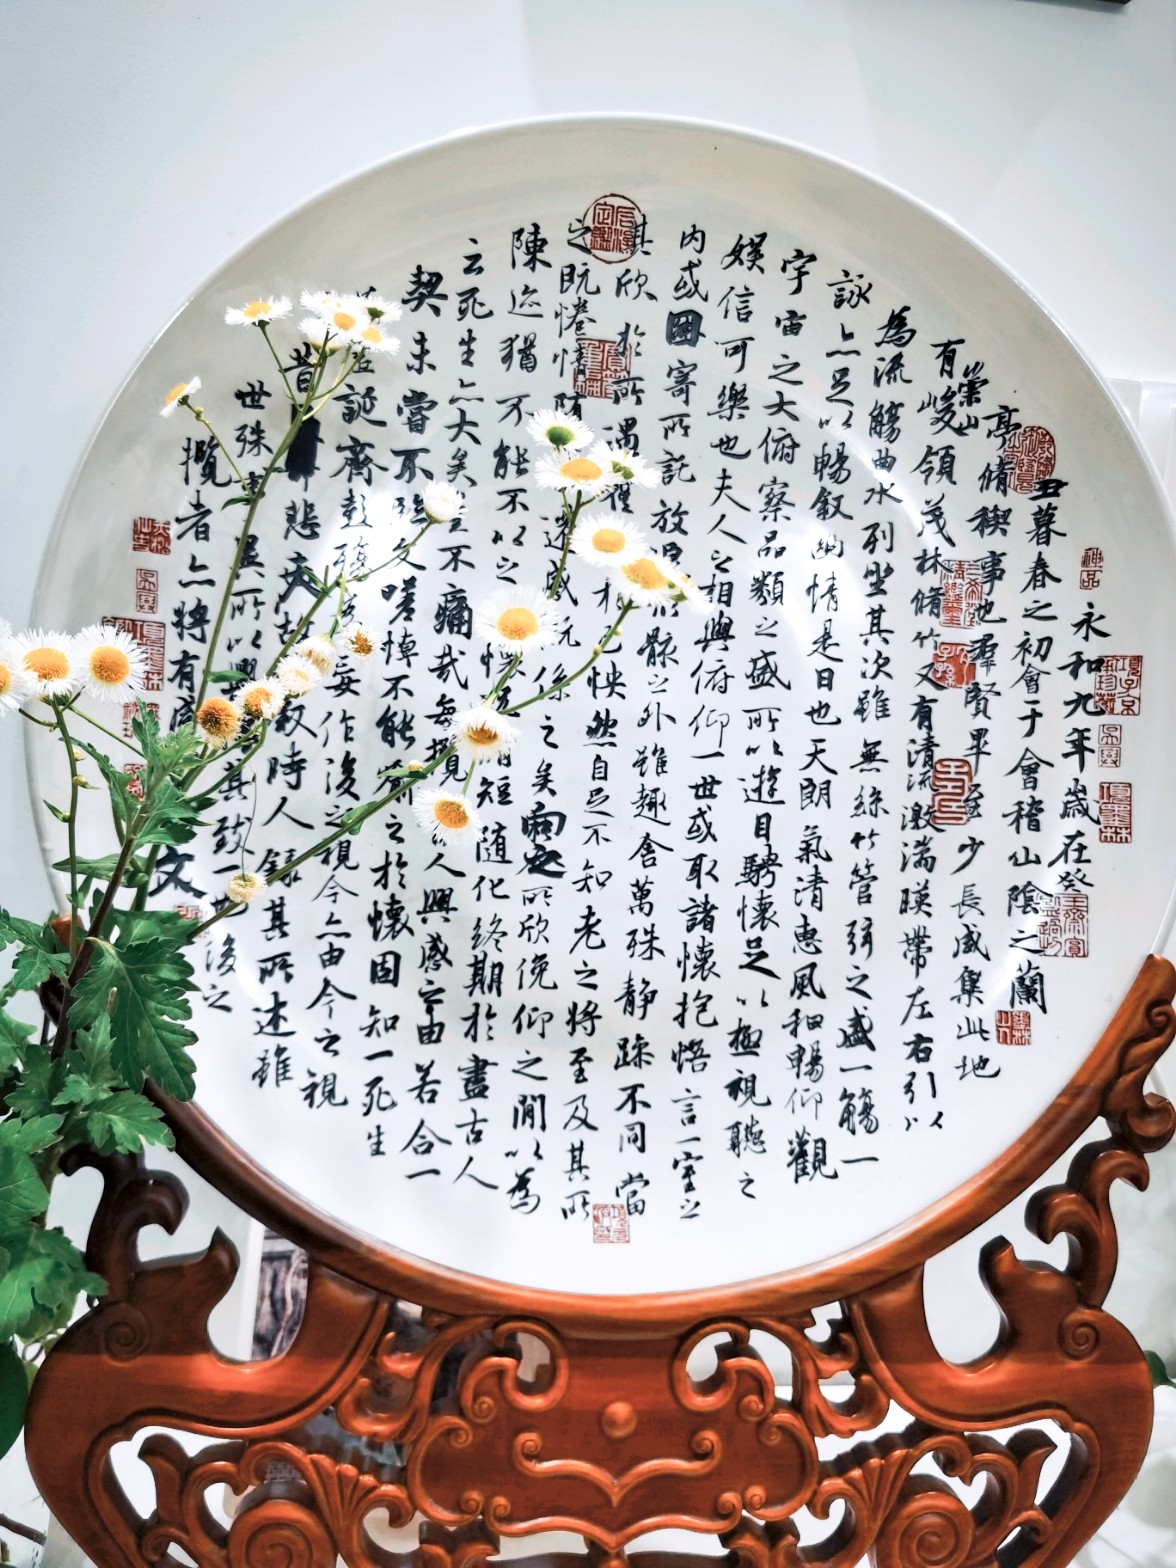 永和九年歲在癸
丑暮春之初會于會稽山陰之蘭
亭脩稧事也羣賢畢至少長咸集此地
有崇山峻領茂林脩竹又有清流激湍暎帶左右引以
為流觴曲水列坐其次雖無絲竹管弦之盛一觴一
詠亦足以暢叙幽情是日也天朗氣清惠風和暢仰觀
宇宙之大俯察品類之盛所以遊目騁懷足以極視聽之
娛信可樂也夫人之相與俯仰一世或取諸懷抱悟言一室之
內或因寄所託放浪骸之外雖趣舍萬殊靜躁不同當
其欣於所遇怏然自足不知老之將至及其所
之既倦情隨遷感係之矣向之所欣俛仰之閒以為
陳迹猶不能不以之懷脩短隨化終期於盡古人
云死生亦大矣豈不痛哉每攬人興感之由若合一
契未嘗不臨文嗟悼不能喻之於懷固知一死生
誕齊彭殤妄作後之視今亦由今之視
昔悲夫故叙時人錄其所述雖
世殊異所以興其致一也後之
攬者亦將有感文